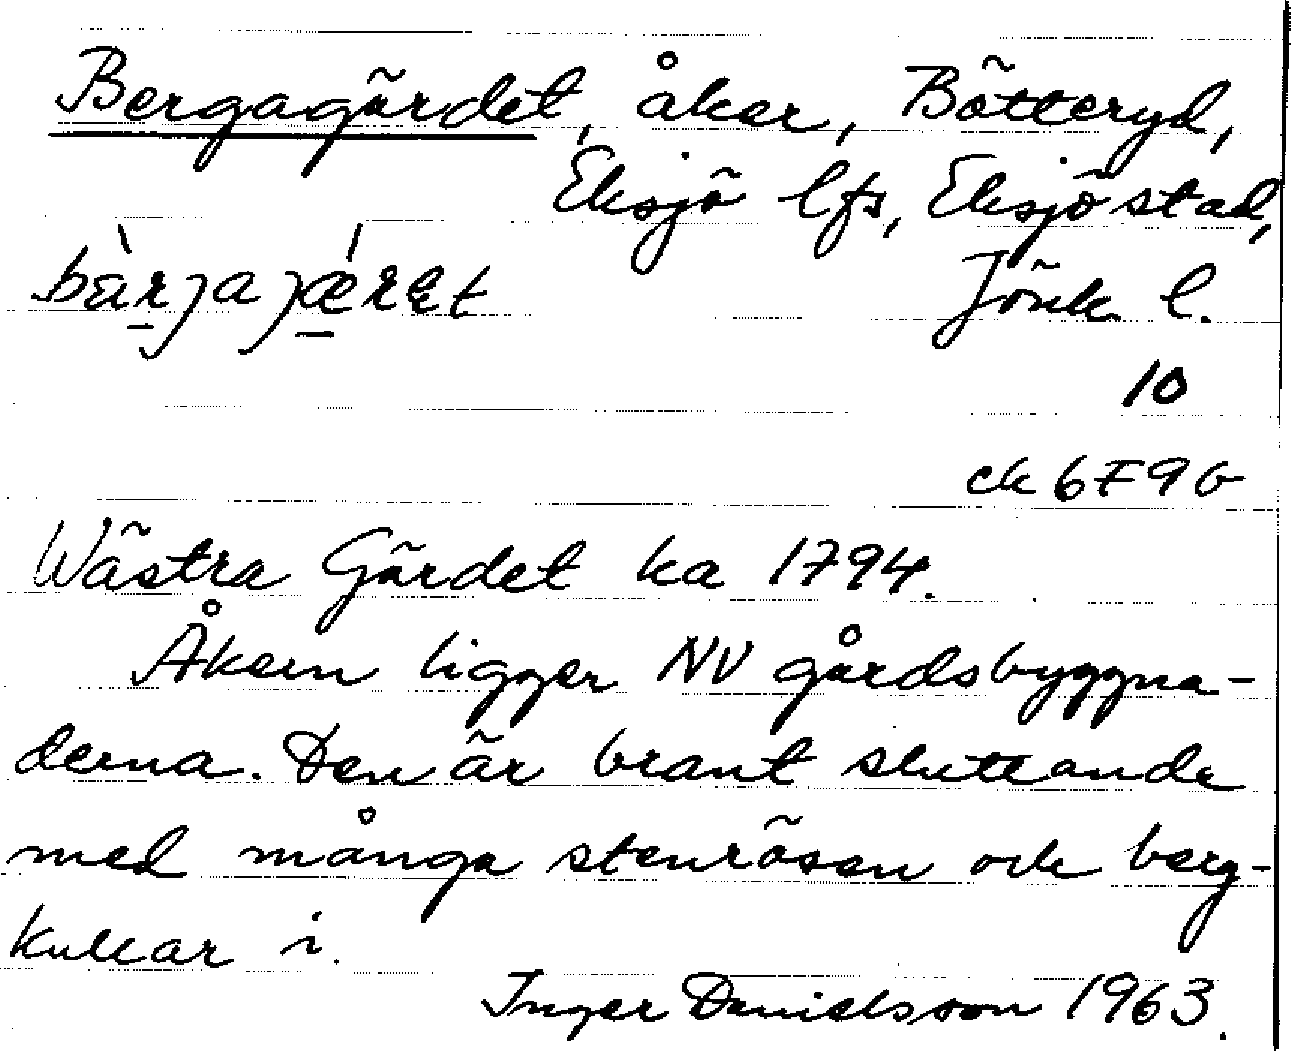 Bergagärdet, åker, Bötteryd,
Eksjö lfs, Eksjö stad,
bàrjajǽret Jönk l.
10
ek 6F9b
Wästra Gärdet ka 1794.
Åkern ligger NV gårdsbyggna-
derna. Den är brant sluttande
med många stenrösen och berg-
kullar i.
Inger Danielsson 1963.